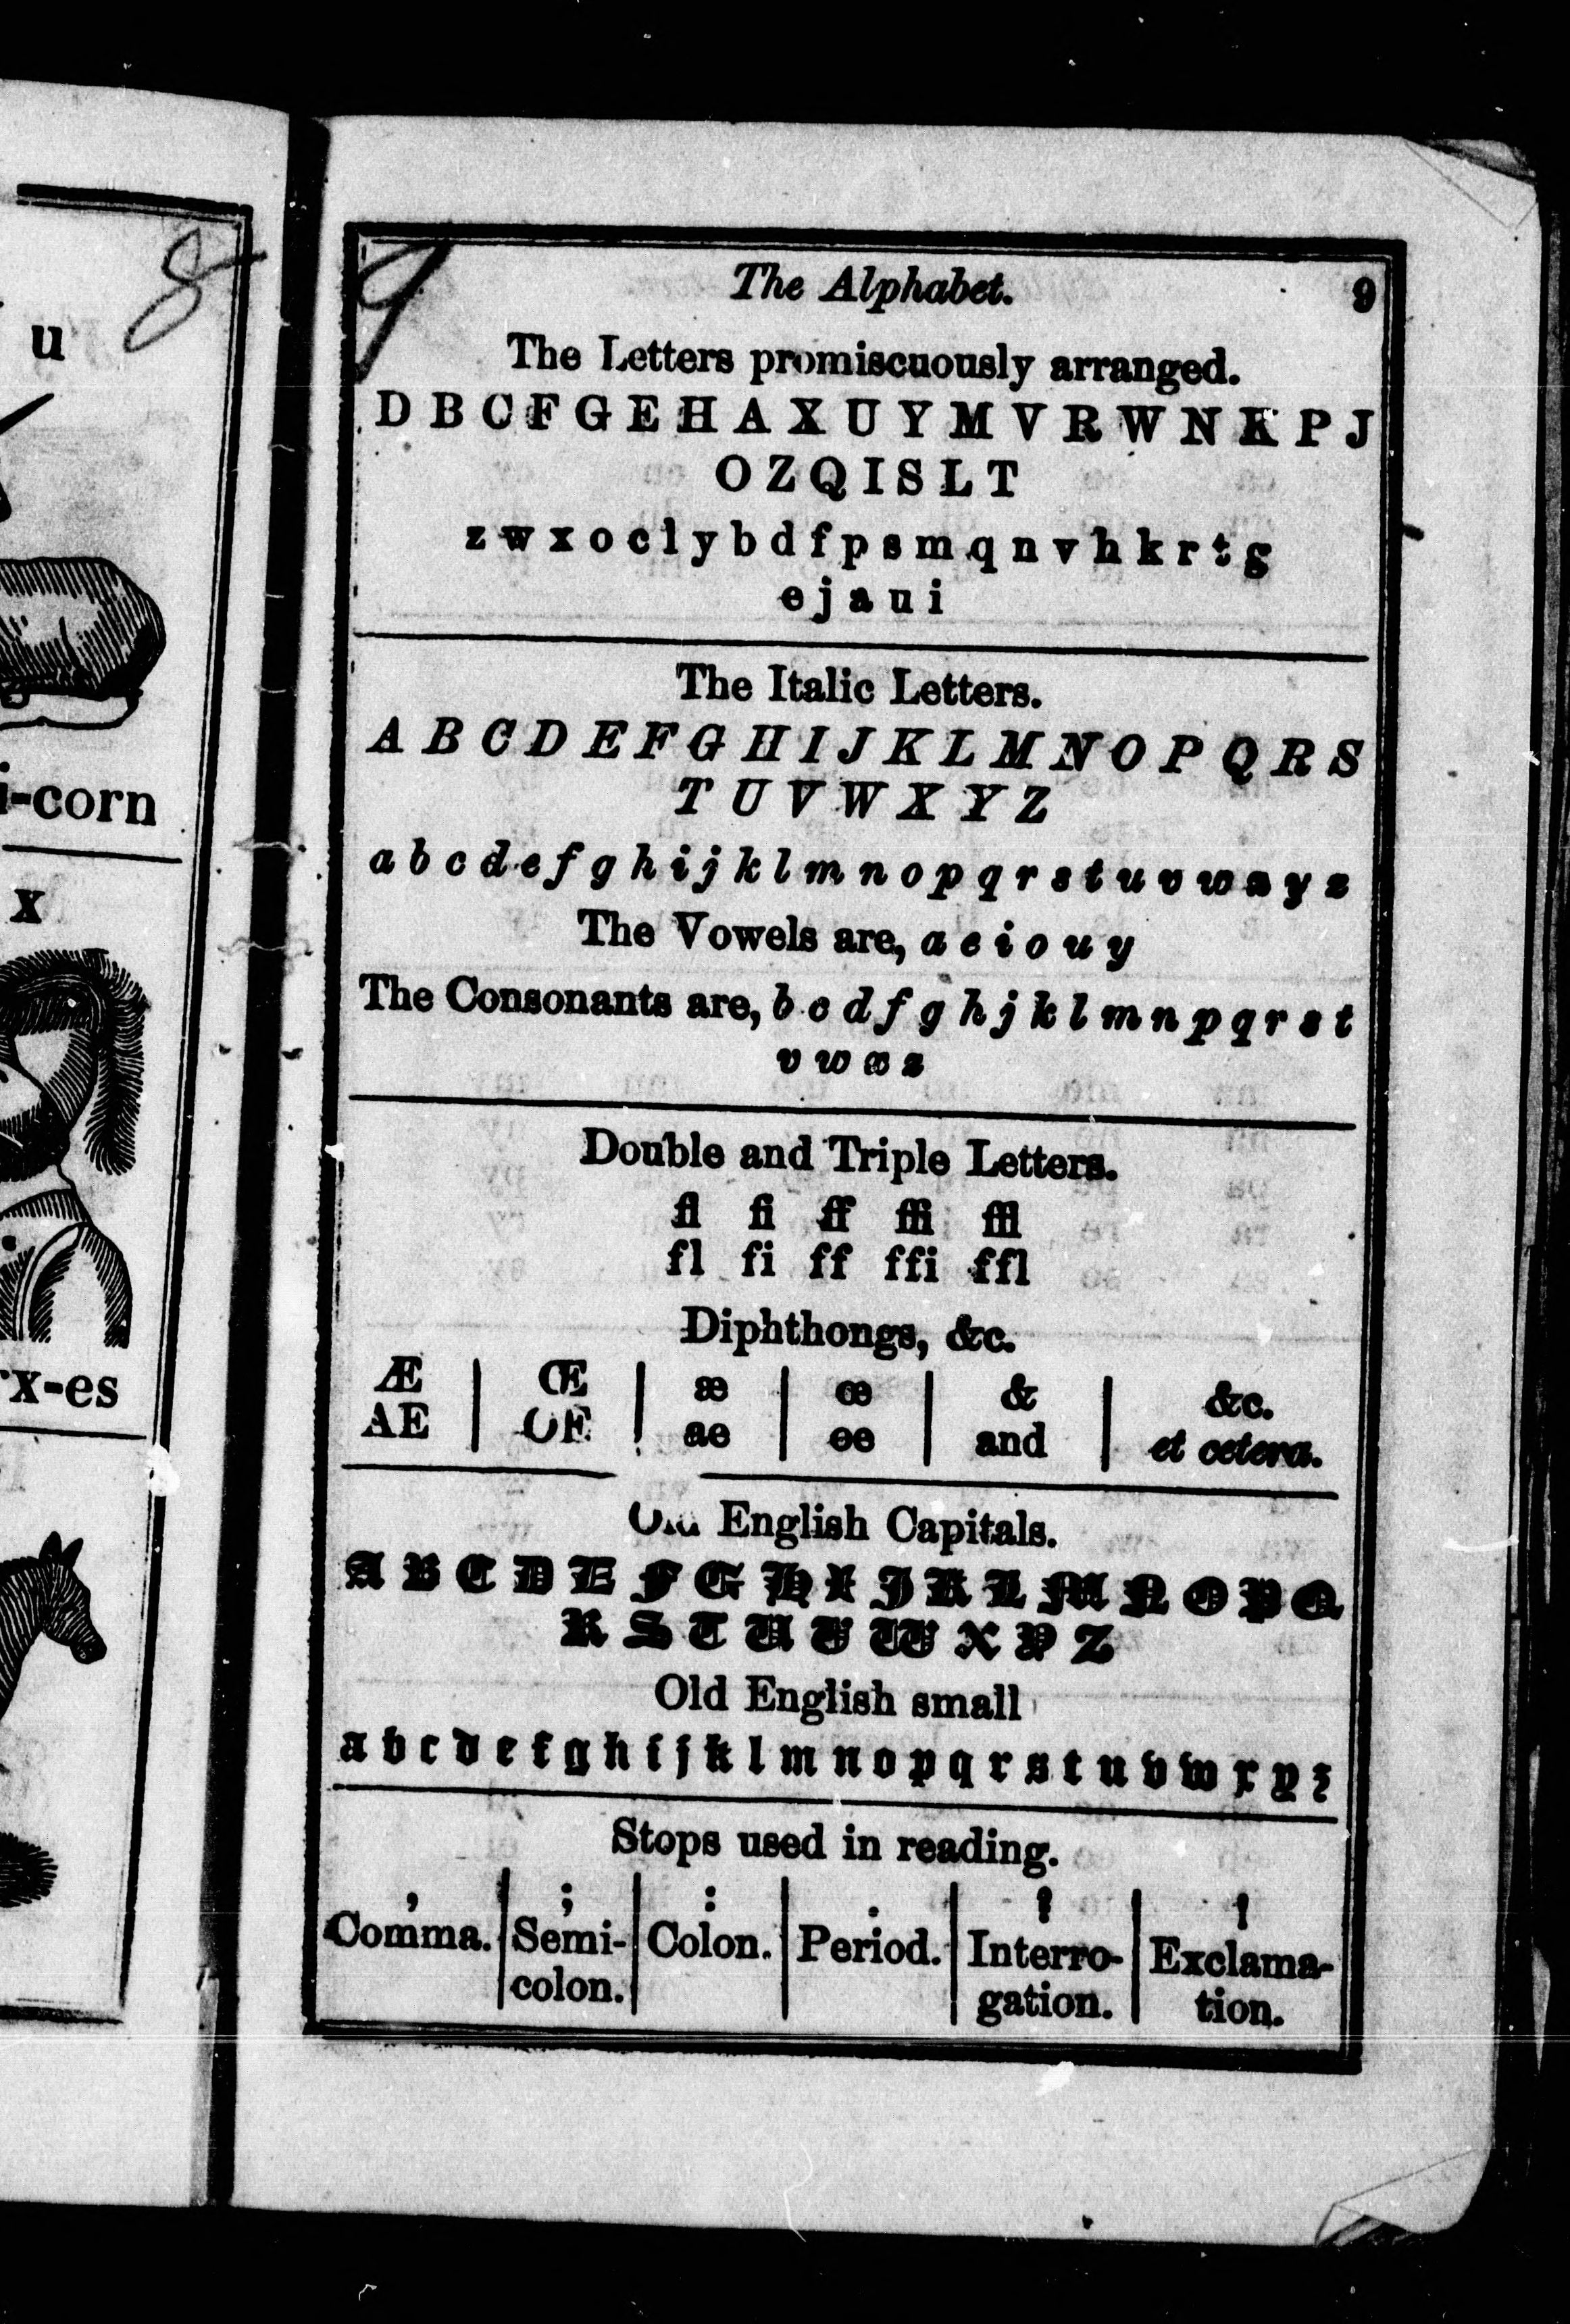 8
u
i-corn
x
x-es
9
The Alphabet. 9
The Letters promiscuously arranged.
D B C F G E H A X U Y M V R W N K P J
O Z Q I S L T
z w x o c l y b d f p s m q n v h k r t g
e j a u i
The Italic Letters.
A B C D E F G H I J K L M N O P Q R S
T U V W X Y Z
a b c d e f g h i j k l m n o p q r s t u v w x y z
The Vowels are, a e i o u y
The Consonants are, b c d f g h j k l m n p q r s t
v w x z
Double and Triple Letters.
ﬂ ﬁ ﬀ ﬃ ﬄ
fl fi ff ffi ffl
Diphthongs, &c.
Æ | Œ | æ | œ | & | &c.
AE | OE | ae | oe | and | et cetera.
Old English Capitals.
A B C D E F G H I J K L M N O P Q
R S T U V W X Y Z
Old English small
a b c d e f g h i j k l m n o p q r s t u v w x y z
Stops used in reading.
, | ; | : | . | ? | !
Comma. | Semi- | Colon. | Period. | Interro- | Exclama-
colon. | gation. | tion.